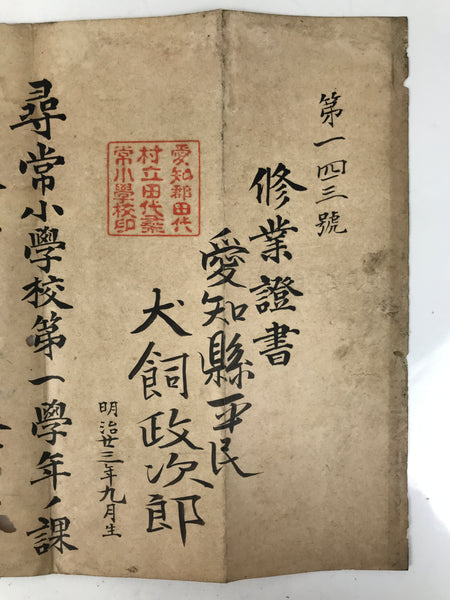 第一四三號
修業證書
愛知縣平民
犬飼政次郎
明治廿三年九月生
愛知郡田代
村立田代尋
常小學校印
尋常小學校第一學年ノ課